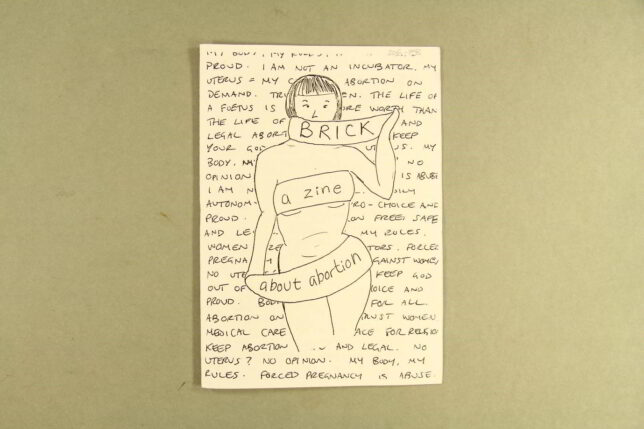 MY BODY, MY RULES.
PROUD. I AM NOT AN INCUBATOR. MY
UTERUS = MY ABORTION ON
DEMAND. EN. THE LIFE OF
A FOETUS IS RE WORTH THAN
THE LIFE OF AND
LEGAL ABORT KEEP
YOUR GOD MY
BODY, NO
OPINION IS ABUSE
I AM N
AUTONOM- RO-CHOICE AND
PROUD. ON FREE, SAFE
AND LE MY RULES.
WOMEN TORS. FORCED
PREGNA GAINST WOMEN
NO UTE KEEP GOD
OUT OF OICE AND
PROUD. BOD FOR ALL.
ABORTION ON RUST WOMEN
MEDICAL CARE ACE FOR RELIGIO
KEEP ABORTION AND LEGAL. NO
UTERUS? NO OPINION. MY BODY, MY
RULES. FORCED PREGNANCY IS ABUSE.
BRICK
a zine
about abortion